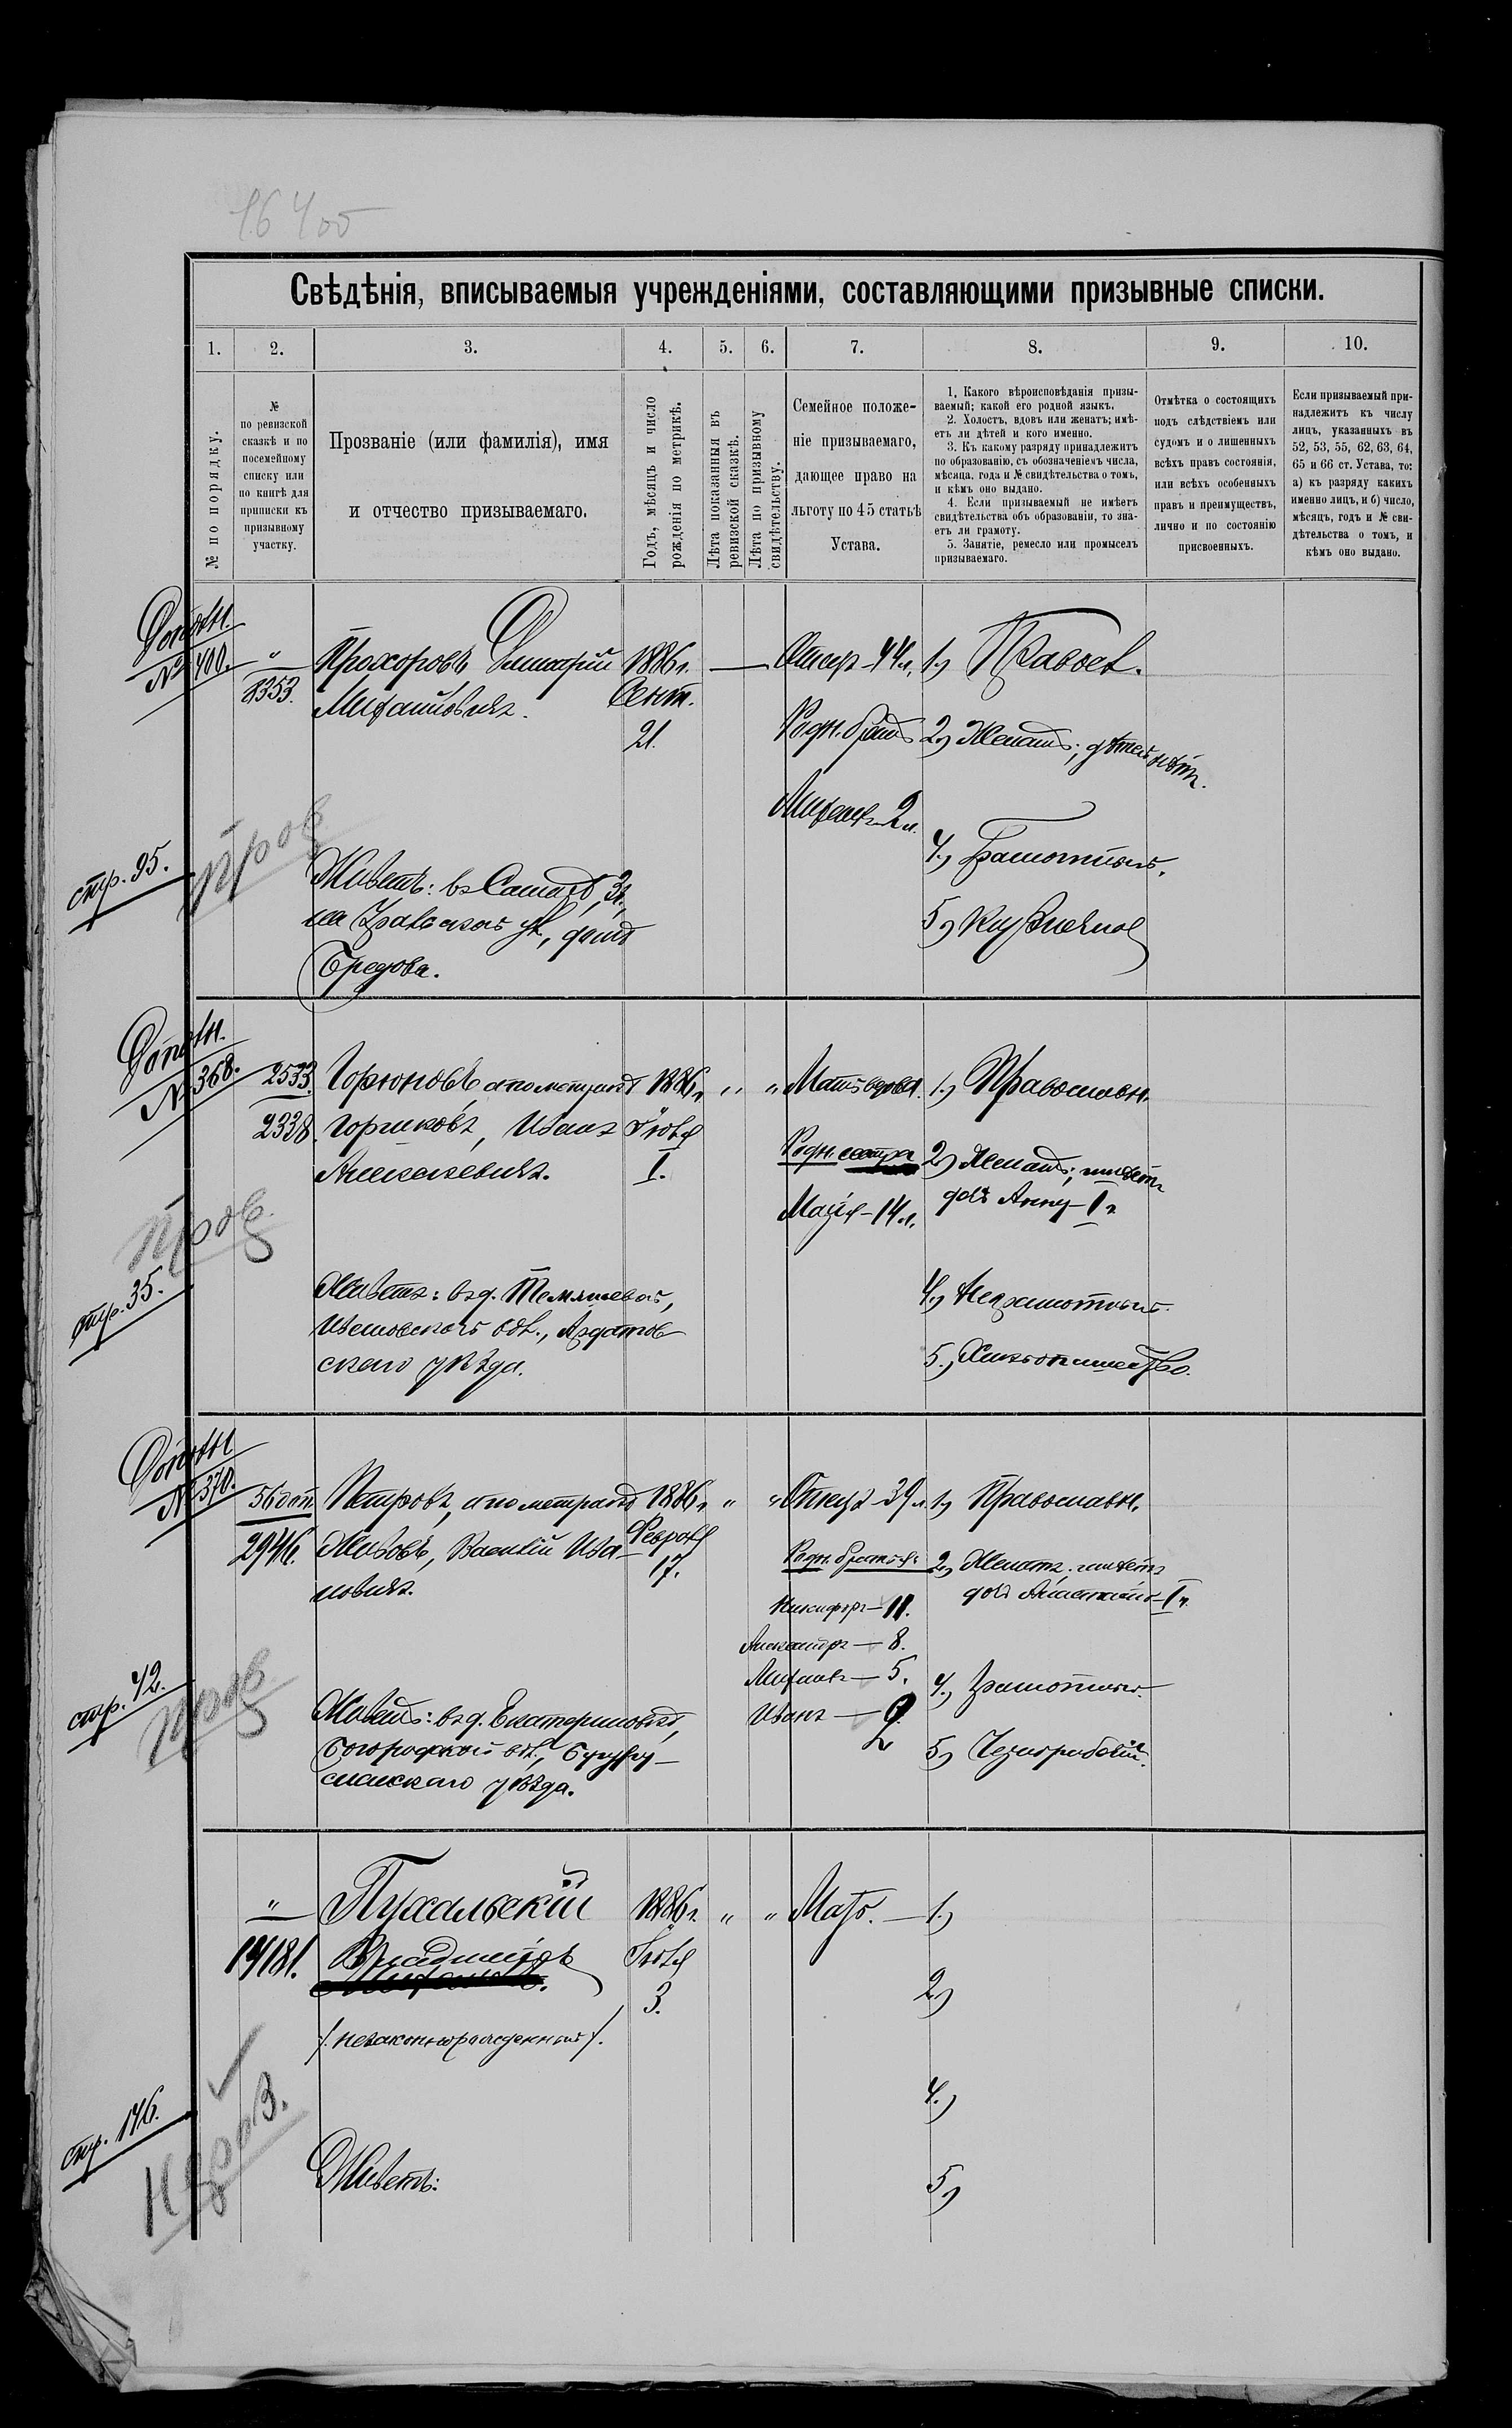 16 400
Свѣдѣнія, вписываемыя учрежденіями, составляющими призывные списки.
1. 2. 3. 4. 5. 6. 7. 8. 9. 10.
№ по порядку.
№
по ревизской
сказкѣ и по
посемейному
списку или
по книгѣ для
приписки къ
призывному
участку.
Прозваніе (или фамилія), имя
и отчество призываемаго.
Годъ, мѣсяцъ и число
рожденія по метрикѣ.
Лѣта показанныя въ
ревизской сказкѣ.
Лѣта по призывному
свидѣтельству.
Семейное положе-
ніе призываемаго,
дающее право на
льготу по 45 статьѣ
Устава.
1. Какого вѣроисповѣданія призы-
ваемый; какой его родной языкъ.
2. Холостъ, вдовъ или женатъ; имѣ-
етъ ли дѣтей и кого именно.
3. Къ какому разряду принадлежитъ
по образованію, съ обозначеніемъ числа,
мѣсяца, года и № свидѣтельства о томъ,
и кѣмъ оно выдано.
4. Если призываемый не имѣетъ
свидѣтельства объ образованіи, то зна-
етъ ли грамоту.
5. Занятіе, ремесло или промыселъ
призываемаго.
Отмѣтка о состоящихъ
подъ слѣдствіемъ или
судомъ и о лишенныхъ
всѣхъ правъ состоянія,
или всѣхъ особенныхъ
правъ и преимуществъ,
лично и по состоянію
присвоенныхъ.
Если призываемый при-
надлежитъ къ числу
лицъ, указанныхъ въ
52, 53, 55, 62, 63, 64,
65 и 66 ст. Устава, то:
а) къ разряду какихъ
именно лицъ, и б) число,
мѣсяцъ, годъ и № сви-
дѣтельства о томъ, и
кѣмъ оно выдано.
Дополн.
№ 400.
"
8353.
Прохоровъ Дмитрій
Михайловичъ.
1886 г.
Сент.
21.
—
Отецъ 44 л.
Родн. братъ
Михаилъ 2 л.
1) Правосл.
2) Женатъ; дѣтей нѣтъ.
4) Грамотный.
5) Кузнечное
стр. 95.
Пров
Живетъ: въ Самарѣ, 3 ч.,
на ул., домъ
Бредова.
Дополн.
№ 368.
2533.
2338
Горюновъ, а по метрикѣ
Горшковъ, Иванъ
Алексѣевичъ.
1886 г.
Іюля
1.
" "
Мать вдова.
Родн. сестра
Марія - 14 л.
1) Православн.
2) Женатъ; имѣетъ
дочь Анну - 1 г.
4) Неграмотный.
5) Хлѣбопашество.
Пров.
стр. 35.
Живетъ: въ д.
волл., Ардатов
скаго уѣзда.
Дополн
№ 370.
56 доп
2946.
Петровъ, а по метрикѣ
Жизовъ, Василій Ива-
новичъ.
1886 г.
Февраля
17.
" "
Отецъ 39 л.
Родн. братья:
Никифоръ — 11.
Александръ — 8.
Михаилъ — 5.
Иванъ — 2
1) Православн.
2) Женатъ, имѣетъ
дочь - 1 г.
4) Грамотный.
5) Чернорабочій.
стр. 42.
Пров
Живетъ: въ д. Екатериновкѣ,
Богородской вол., Бугуру-
сланскаго уѣзда.
"
14181.
Пухальскій
Владиміръ
/. незаконнорожденный /.
1886 г.
Іюля
3.
" "
Мать. —
1)
2)
4)
5)
стр. 146.
Живетъ: